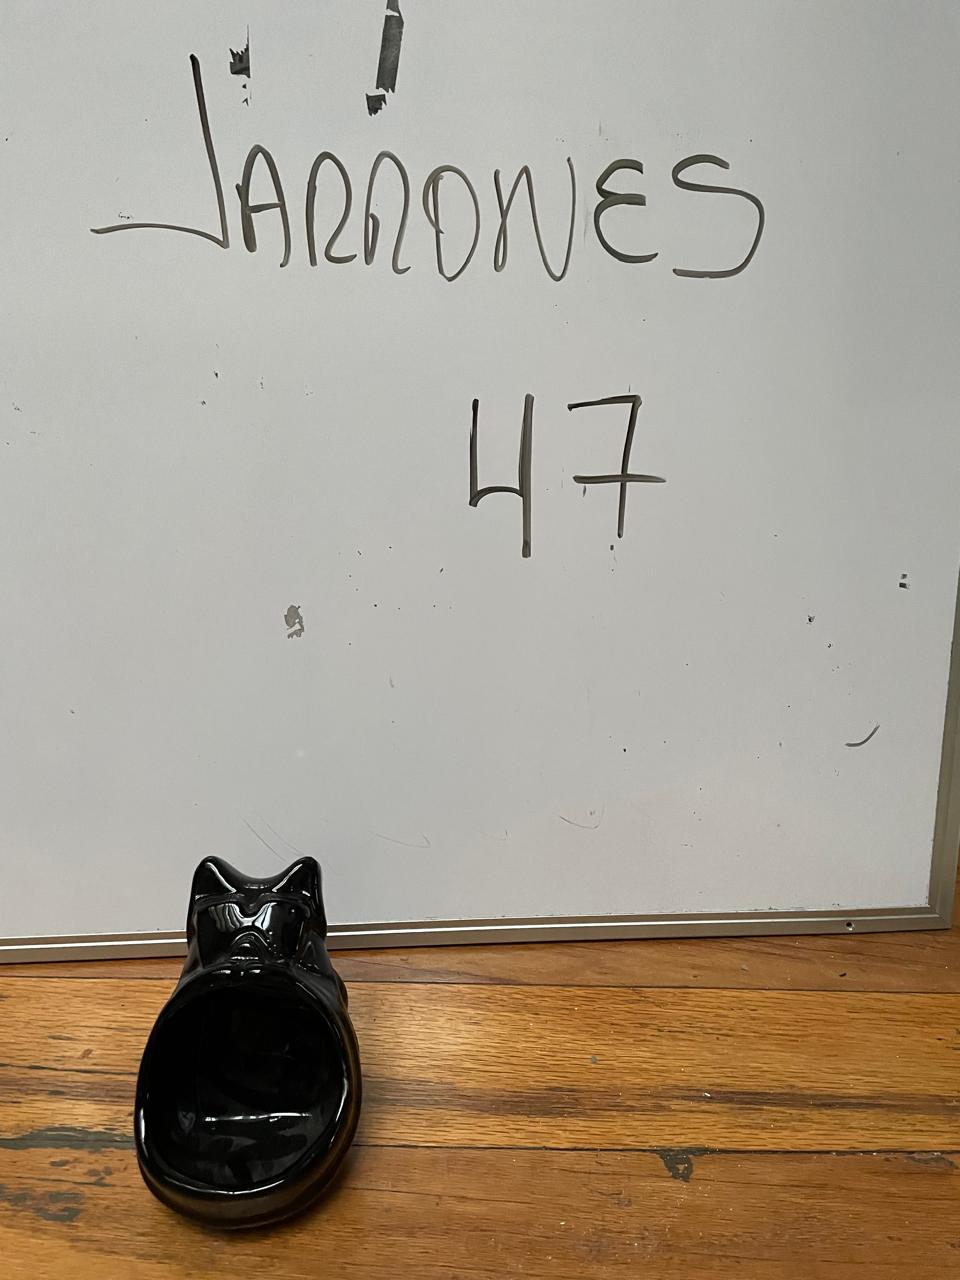 JARRONES
47